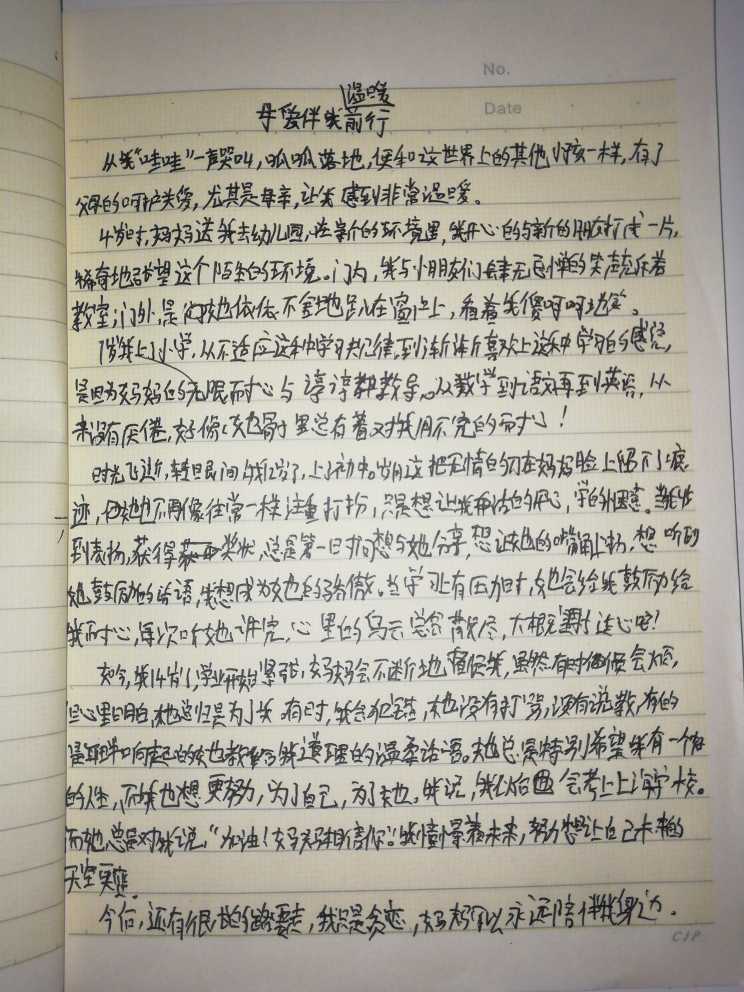 No.
Date
温暖
母爱伴我前行
从我"哇哇"一声哭叫,呱呱落地,便和这世界上的其他小孩一样,有了
父母的呵护关爱,尤其是母亲,让我感到非常温暖。
4岁时,妈妈送我去幼儿园,在新的环境里,我开心的与新的朋友打成一片,
稀奇地张望这个陌生的环境。门内,我与小朋友们肆无忌惮的笑声充斥着
教室;门外,是 她依依不舍地趴在窗户上,看着我傻呵呵地笑。
7岁我上了小学,从不适应这种学习纪律,到渐渐喜欢上这种学习的感觉,
是因为妈妈的无限耐心与谆谆教导。从数学到语文再到英语,从
来没有厌倦,好像她骨子里总有着对我用不完的耐心!
时光飞逝,转眼间我12岁了,上了初中。岁月这把无情的刀在妈妈脸上留下了痕
迹,但她也不再像往常一样注重打扮,只是想让我 的开心,学的 。当我受
到表扬,获得奖状,总是第一时间想与她分享,想让她的嘴角上扬,想听到
她鼓励的话语,我想成为她的骄傲。当学习上有压力时,她也会给我鼓励给
我耐心,每次听她讲完,心里的乌云 会 散尽,大概这就是 心吧!
如今,我14岁了,学业开始紧张,妈妈会不断地督促我,虽然有时候 会烦,
但心里明白,她总归是为了我。有时,我会犯错,她没有打骂,没有说教,有的
是耳畔响起的她教会我道理的温柔话语。她总是特别希望我有一个好
的人生,而我也想更努力,为了自己,为了她。我说,我以后 会考上上海 学校。
而她总是对我说,"加油!妈妈相信你"。我憧憬着未来,努力想让自己未来的
天空更 。
今后,还有很长的路要走,我只是贪恋,妈妈可以永远陪伴我身边。